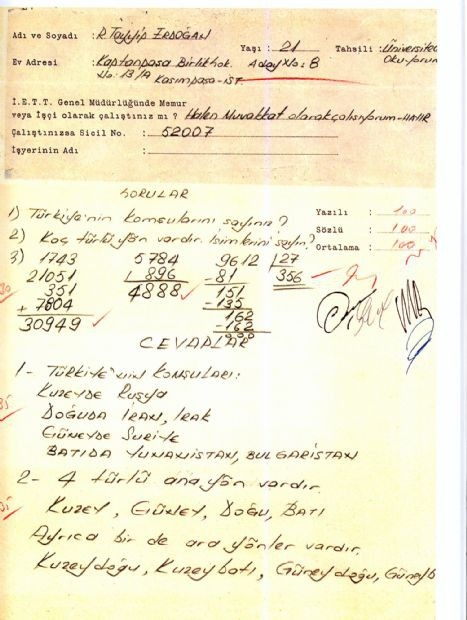 Adı ve Soyadı : R. Tayyip ERDOĞAN
Yaşı : 21 Tahsili : Üniversitede Okuyorum
Ev Adresi : Kaptanpaşa Birlik Sok. Aday No: 8
No: 13/A Kasımpaşa-İST.
İ.E.T.T. Genel Müdürlüğünde Memur
veya İşçi olarak çalıştınız mı ? Halen Muvakkat olarak çalışıyorum-
Çalıştınızsa Sicil No. : 52007
İşyerinin Adı :
SORULAR
1) Türkiye'nin komşularını sayınız?
2) Kaç türlü yön vardır. İsimlerini sayın?
Yazılı : 100
Sözlü : 100
Ortalama : 100
3) 1743 5784 9612 27
21051 896 -81 356
351 4888 151
+ 7804 -135
30949 162
-162
CEVAPLAR
1- TÜRKİYE'NİN KONŞULARI:
KUZEYDE RUSYA
DOĞUDA İRAN, IRAK
GÜNEYDE SURİYE
BATIDA YUNANİSTAN, BULGARİSTAN
2- 4 türlü ana yön vardır.
KUZEY, GÜNEY, DOĞU, BATI
Ayrıca bir de ara yönler vardır.
Kuzeydoğu, Kuzeybatı, Güneydoğu, Güneyb